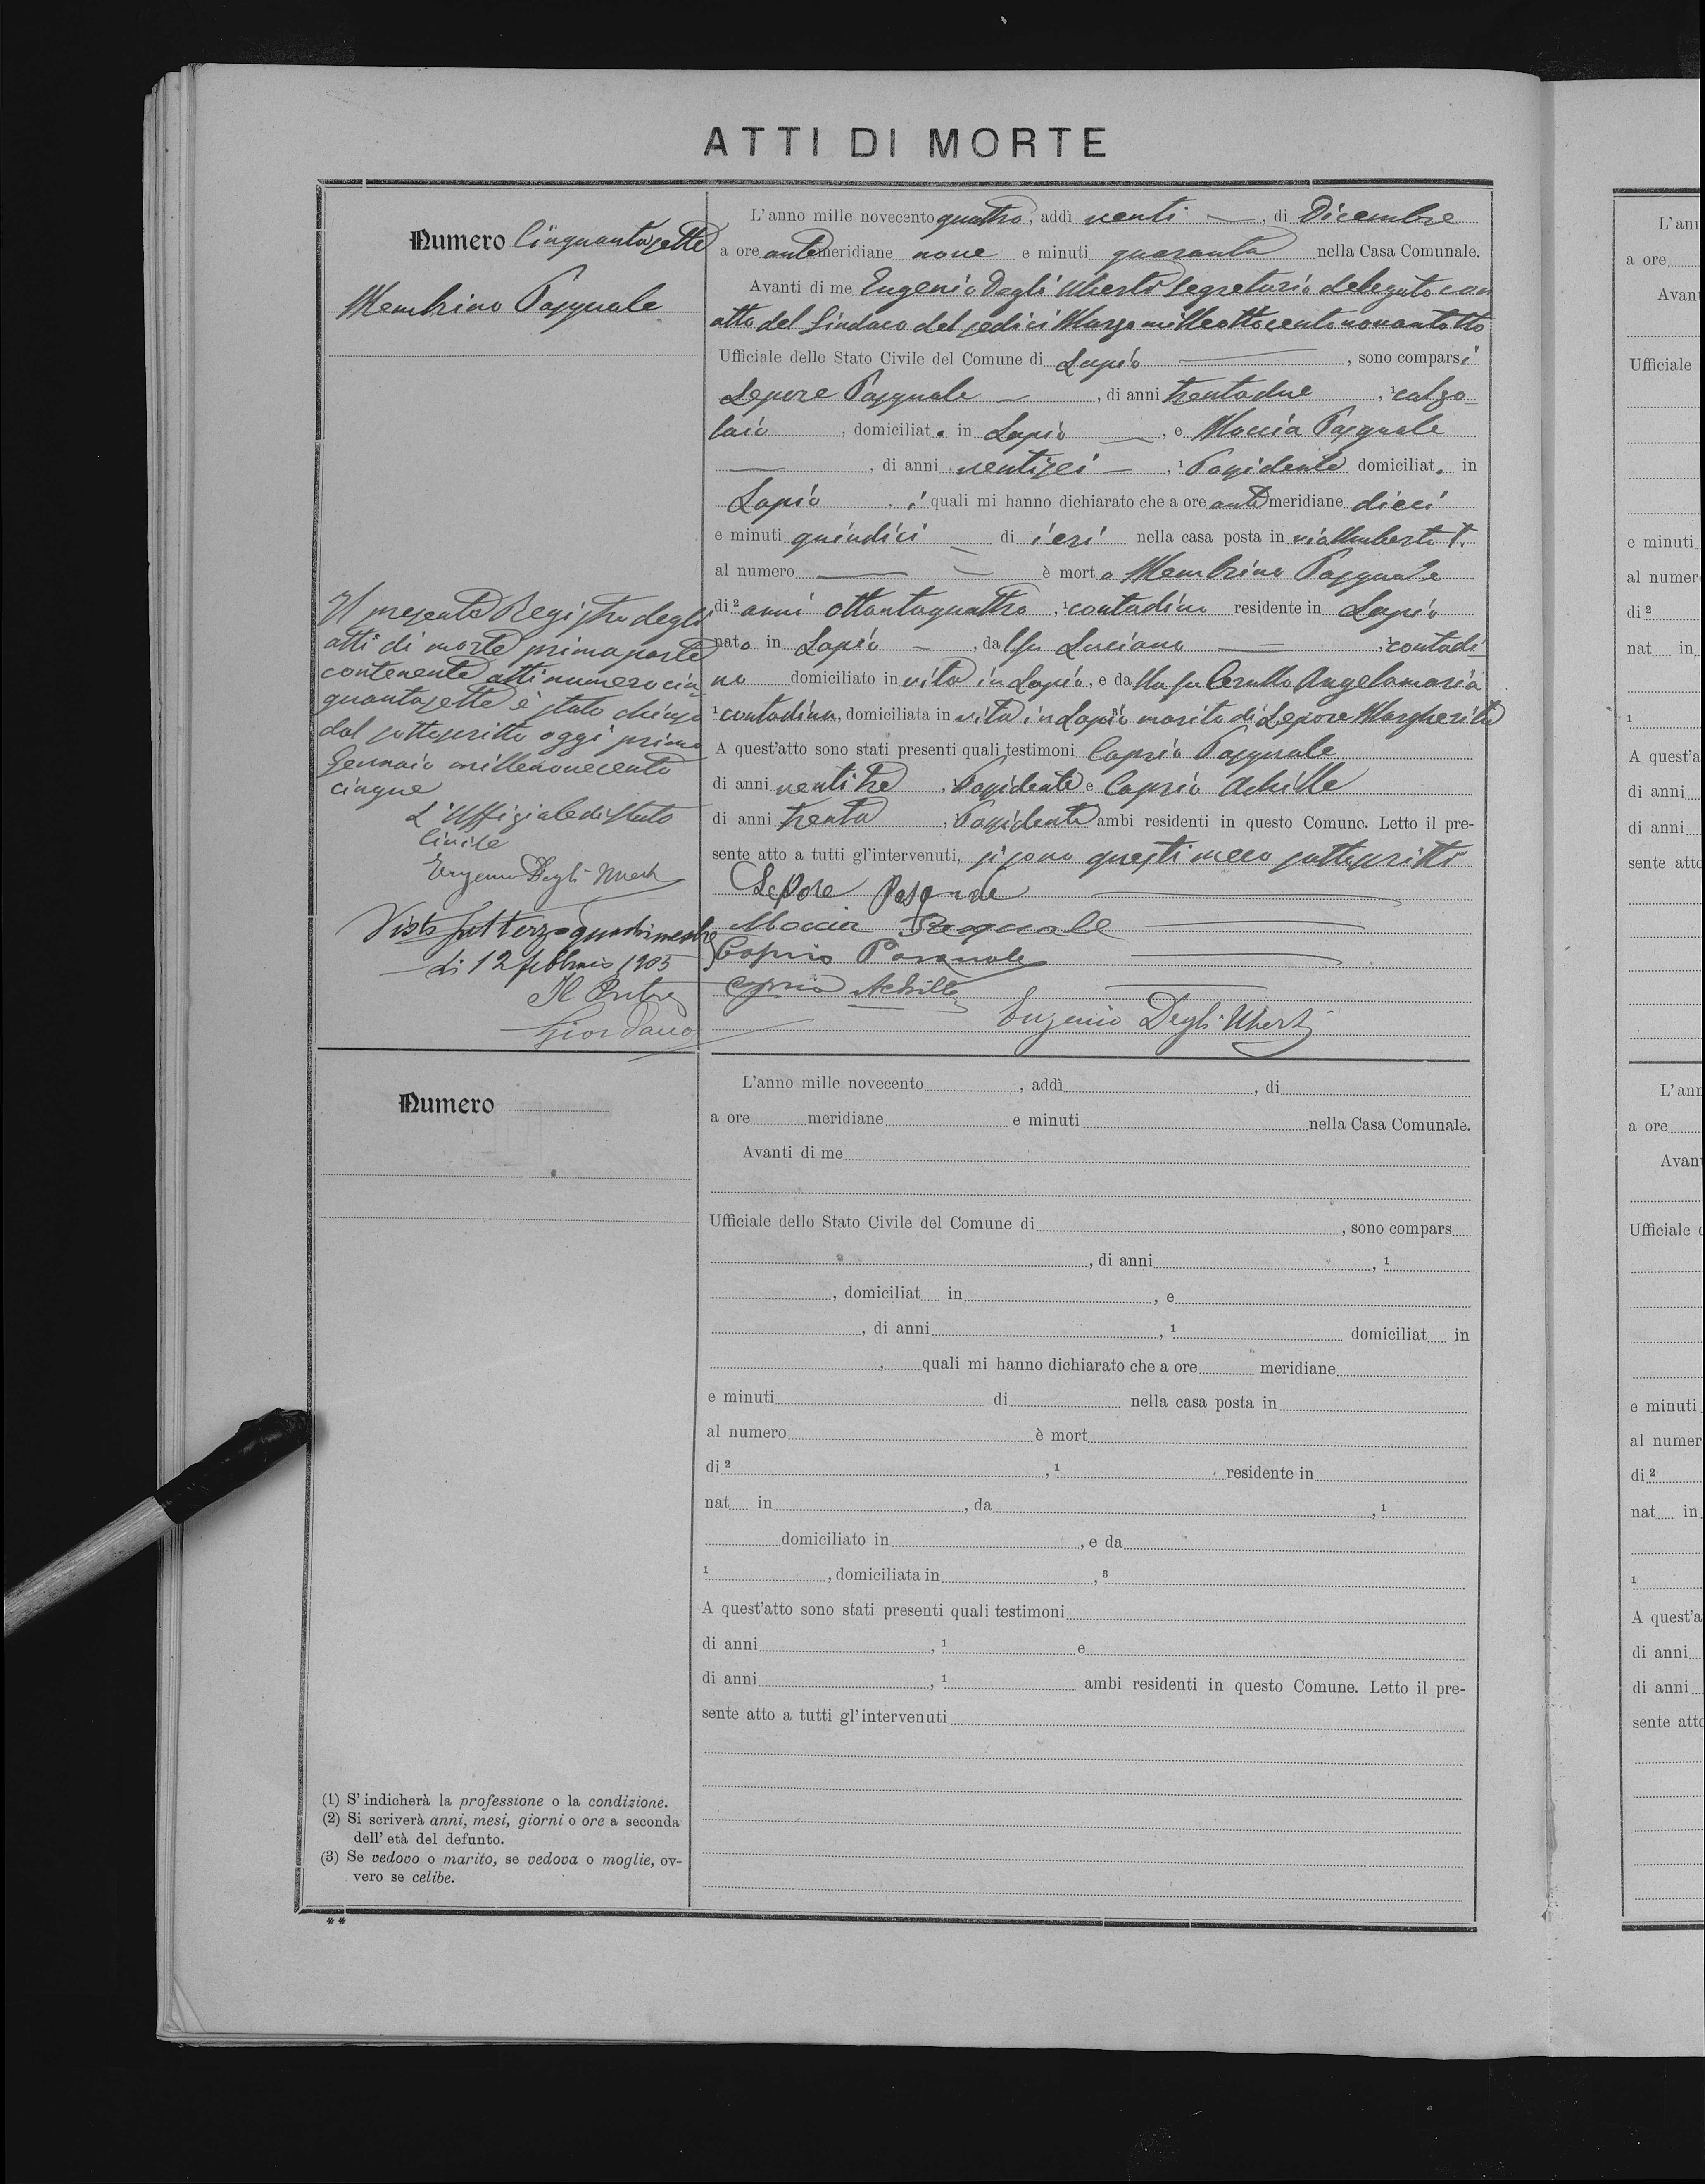 ATTI DI MORTE
Numero Cinquantasette
Membrino Pasquale
L'anno mille novecento quattro, addì venti, di Dicembre
a ore antemeridiane nove e minuti quaranta nella Casa Comunale.
Avanti di me Eugenio Degli Uberti Segretario delegato con
atto del Sindaco del sedici Marzo milleottocentonovantotto
Ufficiale dello Stato Civile del Comune di Lapio, sono comparsi
Lepore Pasquale, di anni trentadue, ¹ calzo-
laio, domiciliato in Lapio, e Moccia Pasquale
, di anni ventisei, ¹ Possidente domiciliato in
Lapio, i quali mi hanno dichiarato che a ore antemeridiane dieci
e minuti quindici di ieri nella casa posta in via Umberto I.
al numero è morto Membrino Pasquale
di ² anni ottantaquattro, ¹ contadino residente in Lapio
nato in Lapio, dal fu Luciano, ¹ contadi-
no domiciliato in vita in Lapio, e dalla fu Cerullo Angelamaria
¹ contadina, domiciliata in vita in Lapio ³ marito di Lepore Margherita
A quest'atto sono stati presenti quali testimoni Caprio Pasquale
di anni ventitre, ¹ Possidente e Caprio Achille
di anni trenta, ¹ Possidente ambi residenti in questo Comune. Letto il pre-
sente atto a tutti gl'intervenuti, si sono questi meco sottoscritti
Lepore Pasquale
Moccia Pasquale
Caprio Pasquale
Caprio Achille
Eugenio Degli Uberti
Il presente Registro degli
atti di morte prima parte
contenente atti numero cin-
quantasette è stato chiuso
dal sottoscritto oggi primo
Gennaio millenovecento
cinque
L'Uffiziale di Stato
Civile
Eugenio Degli Uberti
Visto pel terzo quadrimestre
Li 12 febbraio 1905
Il Pretore
Giordano
Numero
L'anno mille novecento, addì, di
a ore meridiane e minuti nella Casa Comunale.
Avanti di me
Ufficiale dello Stato Civile del Comune di, sono compars
, di anni, ¹
, domiciliat in, e
, di anni, ¹ domiciliat in
, quali mi hanno dichiarato che a ore meridiane
e minuti di nella casa posta in
al numero è mort
di ², ¹ residente in
nat in, da, ¹
domiciliato in, e da
¹, domiciliata in, ³
A quest'atto sono stati presenti quali testimoni
di anni, ¹ e
di anni, ¹ ambi residenti in questo Comune. Letto il pre-
sente atto a tutti gl'intervenuti
(1) S'indicherà la professione o la condizione.
(2) Si scriverà anni, mesi, giorni o ore a seconda
dell'età del defunto.
(3) Se vedovo o marito, se vedova o moglie, ov-
vero se celibe.
**
L'ann
a ore
Avant
Ufficiale
e minuti
al numero
di ²
nat in
¹
A quest'a
di anni
di anni
sente atto
L'ann
a ore
Avant
Ufficiale d
e minuti
al numer
di ²
nat in
¹
A quest'a
di anni
di anni
sente atto